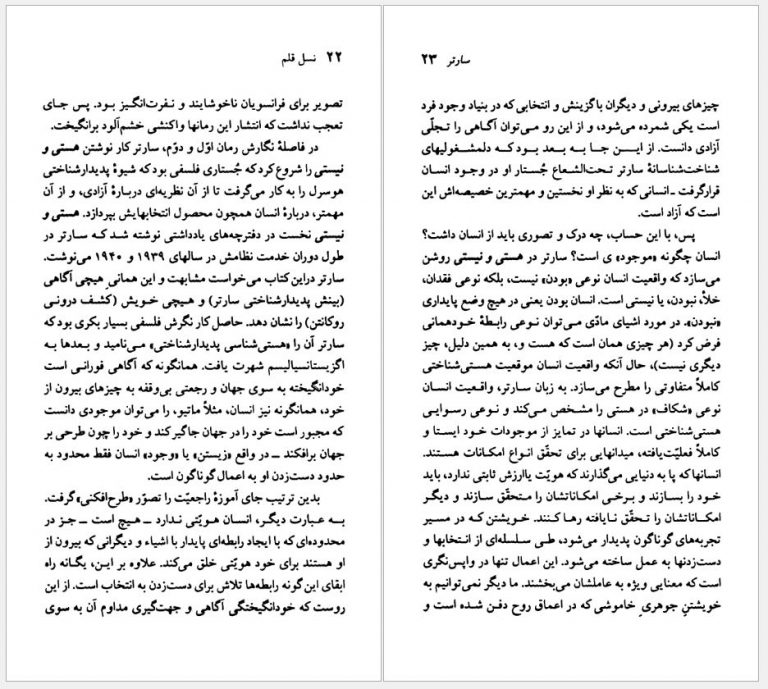 ۲۲ نسل قلم
تصویر برای فرانسویان ناخوشایند و نفرت‌انگیز بود. پس جای
تعجب نداشت که انتشار این رمانها واکنشی خشم‌آلود برانگیخت.
در فاصلهٔ نگارش رمان اوّل و دوّم، سارتر کار نوشتن هستی و
نیستی را شروع کرد که جُستاری فلسفی بود که شیوهٔ پدیدارشناختی
هوسرل را به کار می‌گرفت تا از آن نظریه‌ای دربارهٔ آزادی، و از آن
مهمتر، دربارهٔ انسان همچون محصول انتخابهایش بپردازد. هستی و
نیستی نخست در دفترچه‌های یادداشتی نوشته شد که سارتر در
طول دوران خدمت نظامش در سالهای ۱۹۳۹ و ۱۹۴۰ می‌نوشت.
سارتر دراین کتاب می‌خواست مشابهت و این همانیِ هیچی آگاهی
(بینش پدیدارشناختی سارتر) و هیچی خویش (کشف درونی
روکانتن) را نشان دهد. حاصل کار نگرش فلسفی بسیار بکری بود که
سارتر آن را «هستی‌شناسی پدیدارشناختی» می‌نامید و بعدها به
اگزیستانسیالیسم شهرت یافت. همانگونه که آگاهی فورانی است
خودانگیخته به سوی جهان و رجعتی بی‌وقفه به چیزهای بیرون از
خود، همانگونه نیز انسان، مثلاً ماتیو، را می‌توان موجودی دانست
که مجبور است خود را در جهان جاگیر کند و خود را چون طرحی بر
جهان برافکند ــ در واقع «زیستن» یا «وجود» انسان فقط محدود به
حدود دست‌زدن او به اعمال گوناگون است.
بدین ترتیب جای آموزهٔ راجعیّت را تصوّر «طرح‌افکنی» گرفت.
به عبارت دیگر، انسان هویّتی ندارد ــ هیچ است ــ جز در
محدوده‌ای که با ایجاد رابطه‌ای پایدار با اشیاء و دیگرانی که بیرون از
او هستند برای خود هویّتی خلق می‌کند. علاوه بر این، یگانه راه
ابقای این‌گونه رابطه‌ها تلاش برای دست‌زدن به انتخاب است. از این
روست که خودانگیختگی آگاهی و جهت‌گیری مداوم آن به سوی
سارتر ۲۳
چیزهای بیرونی و دیگران باگزینش و انتخابی که در بنیاد وجود فرد
است یکی شمرده می‌شود، و از این رو می‌توان آگاهی را تجلّی
آزادی دانست. از این جا به بعد بود که دلمشغولیهای
شناخت‌شناسانهٔ سارتر تحت‌الشعاع جُستار او در وجود انسان
قرارگرفت ـ انسانی که به نظر او نخستین و مهمترین خصیصه‌اش این
است که آزاد است.
پس، با این حساب، چه درک و تصوری باید از انسان داشت؟
انسان چگونه «موجود» ی است؟ سارتر در هستی و نیستی روشن
می‌سازد که واقعیت انسان نوعی «بودن» نیست، بلکه نوعی فقدان،
خلأ، نبودن، یا نیستی است. انسان بودن یعنی در هیچ وضع پایداری
«نبودن». در مورد اشیای مادّی می‌توان نوعی رابطهٔ خودهمانی
فرض کرد (هر چیزی همان است که هست و، به همین دلیل، چیز
دیگری نیست)، حال آنکه واقعیت انسان موقعیت هستی‌شناختی
کاملاً متفاوتی را مطرح می‌سازد. به زبان سارتر، واقعیت انسان
نوعی «شکاف» در هستی را مشخص می‌کند و نوعی رسوایی
هستی‌شناختی است. انسانها در تمایز از موجودات خود ایستا و
کاملاً فعلیّت‌یافته، میدانهایی برای تحقّق انواع امکانات هستند.
انسانهاکه پا به دنیایی می‌گذارند که هویّت یاارزش ثابتی ندارد، باید
خود را بسازند و برخی امکاناتشان را متحقّق سازند و دیگر
امکاناتشان را تحقّق نایافته رها کنند. خویشتن که در مسیر
تجربه‌های گوناگون پدیدار می‌شود، طی سلسله‌ای از انتخابها و
دست‌زدنها به عمل ساخته می‌شود. این اعمال تنها در واپس‌نگری
است که معنایی ویژه به عاملشان می‌بخشند. ما دیگر نمی‌توانیم به
خویشتنِ جوهریِ خاموشی که در اعماق روح دفن شده است و